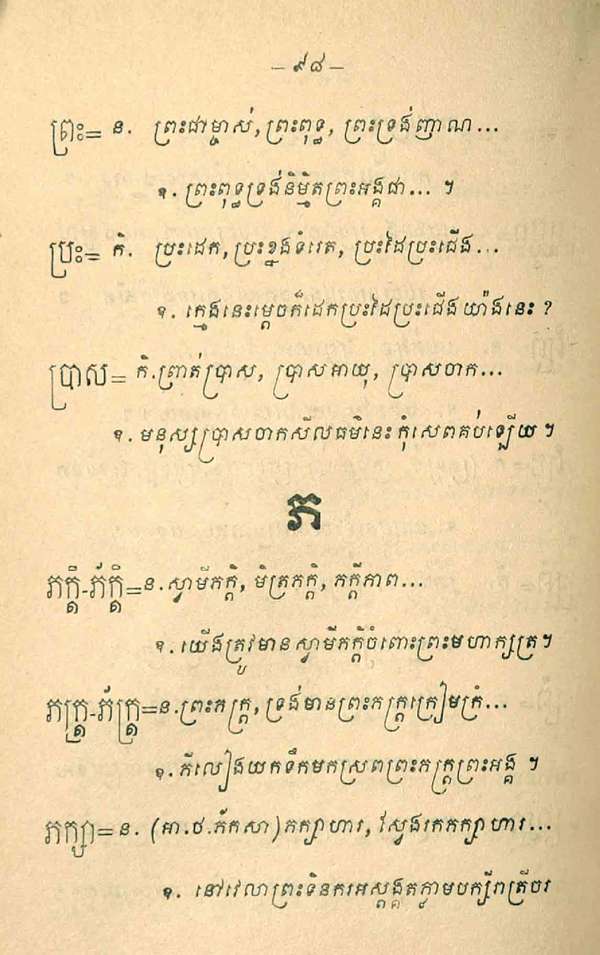 – ៩៨ –
ព្រះ= ន. ព្រះជាម្ចាស់, ព្រះពុទ្ធ, ព្រះទ្រង់ញាណ...
ឧ. ព្រះពុទ្ធទ្រង់និម្មិតព្រះអង្គជា... ។
ប្រះ= កិ. ប្រះដេក, ប្រះខ្នងទំរេត, ប្រះដៃប្រះជើង...
ឧ. ក្មេងនេះម្តេចក៏ដេកប្រះដៃប្រះជើងយ៉ាងនេះ ?
ប្រាស= កិ.ព្រាត់ប្រាស, ប្រាសអាយុ, ប្រាសចាក...
ឧ. មនុស្សប្រាសចាកសីលធម៌នេះកុំសេពគប់ឡើយ ។
ភ
ភក្តី-ភ័ក្តី=ន.ស្វាមីភក្តិ, មិត្រភក្តិ, ភក្តីភាព...
ឧ. យើងត្រូវមានស្វាមីភក្តិចំពោះព្រះមហាក្សត្រ។
ភក្ត្រ-ភ័ក្ត្រ=ន.ព្រះភក្ត្រ, ទ្រង់មានព្រះភក្ត្រក្រៀមក្រំ...
ឧ. ភីលៀងយកទឹកមកស្រពព្រះភក្ត្រព្រះអង្គ ។
ភក្សា= ន. (អា.ថ.ភ័កសា) ភក្សាហារ, ស្វែងរកភក្សាហារ...
ឧ. នៅវេលាព្រះទិនករអស្តង្គតក្លាមបក្សីរាត្រីចរ